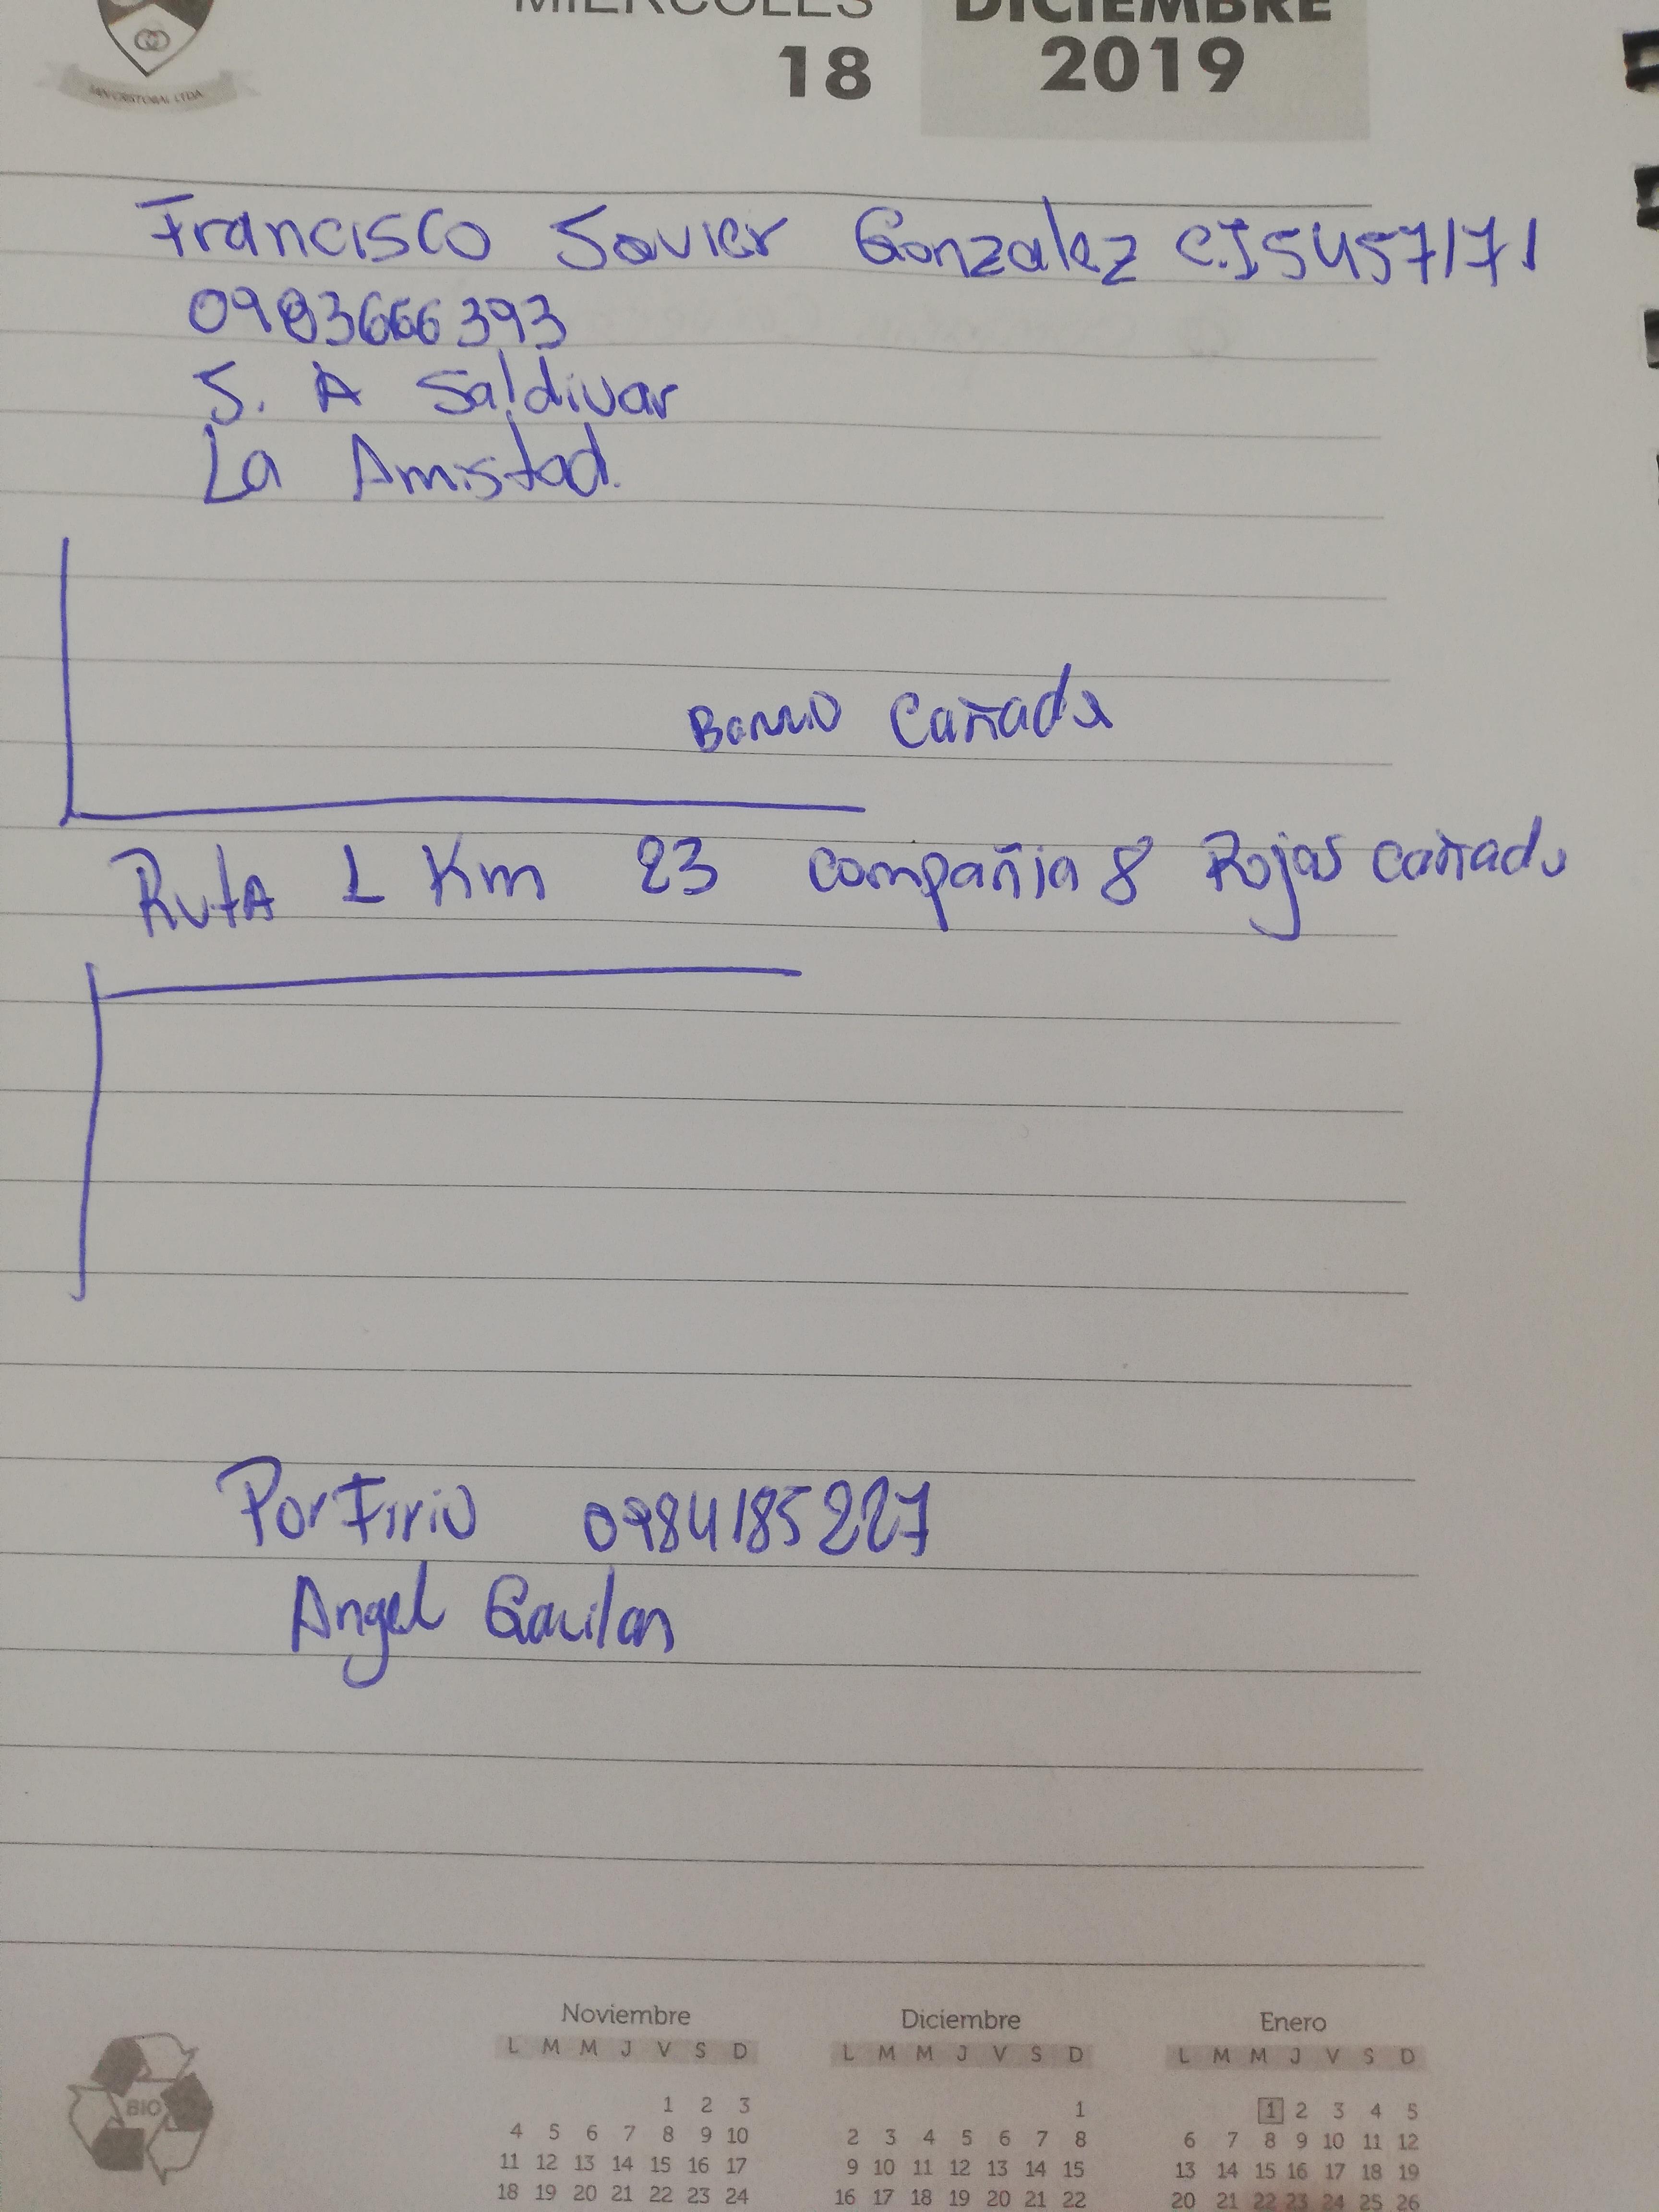 MIERCOLES
DICIEMBRE
18
2019
SAN CRISTOBAL LTDA.
Francisco Javier Gonzalez C.I 5457171
0983666393
J. A Saldivar
La Amistad.
Barrio Cañada
RutA 1 Km 23 compañia 8 Rojas cañada
PorFirio 0984185227
Angel Gavilan
BIO
Noviembre
L M M J V S D
1 2 3
4 5 6 7 8 9 10
11 12 13 14 15 16 17
18 19 20 21 22 23 24
Diciembre
L M M J V S D
1
2 3 4 5 6 7 8
9 10 11 12 13 14 15
16 17 18 19 20 21 22
Enero
L M M J V S D
1 2 3 4 5
6 7 8 9 10 11 12
13 14 15 16 17 18 19
20 21 22 23 24 25 26